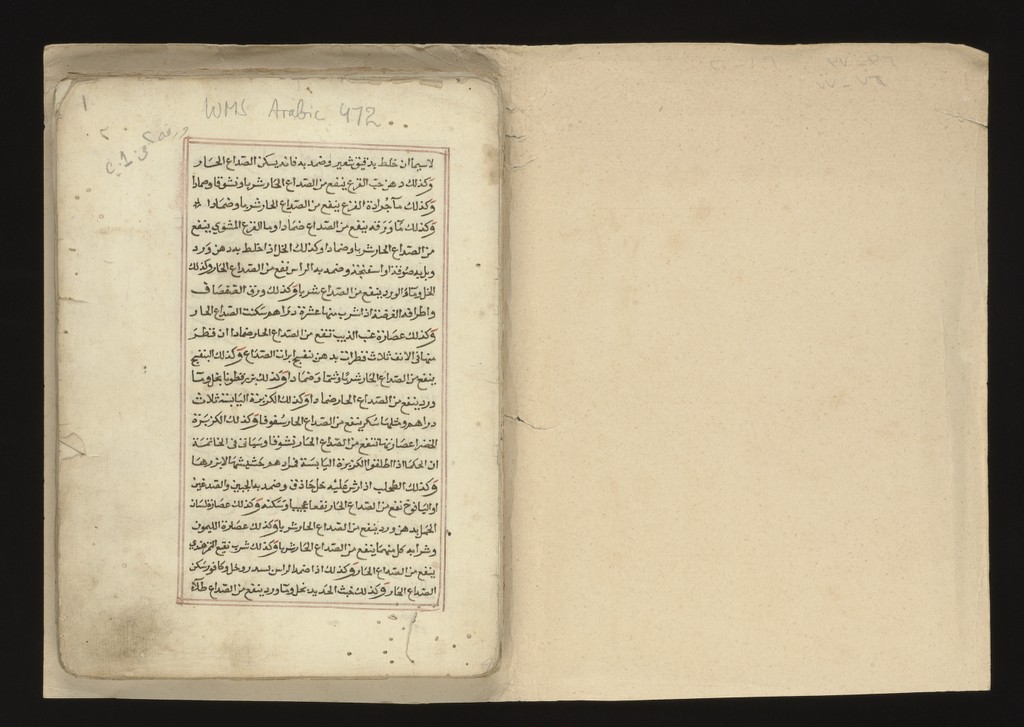 WMS Arabic 472
لاسيما ان خلط بدقيق شعير وضمد به فانه يسكن الصداع الحار
وكذلك دهن حب القرع ينفع من الصداع الحار شربا ونشوقا وضمادا
وكذلك ماء جرادة القرع ينفع من الصداع الحار شربا وضمادا
وكذلك ماء ورقه ينفع من الصداع ضمادا وماء القرع المشوي ينفع
من الصداع الحار شربا وضمادا وكذلك الخل اذا خلط بدهن ورد
وبل به صوفة او اسفنجة وضمد به الراس نفع من الصداع الحار وكذلك
الخل وماء الورد ينفع من الصداع شربا وكذلك ورق الصفصاف
واطرافه الغضة اذا شرب منها عشرة دراهم سكنت الصداع الحار
وكذلك عصارة عنب الذيب تنفع من الصداع الحار ضمادا ان قطر
منها في الانف ثلاث قطرات بدهن بنفسج ابرات الصداع وكذلك البنفسج
ينفع من الصداع الحار شربا وشما وضمادا وكذلك بزر قطونا بخل وماء
ورد ينفع من الصداع الحار ضمادا وكذلك الكزبرة اليابسة ثلاث
دراهم ومثلها سكر ينفع من الصداع الحار سفوفا وكذلك الكزبرة
الخضرا عصارتها تنفع من الصداع الحار نشوقا وسياتي في الخاتمة
ان الحكما اذا اطلقوا الكزبرة اليابسة فمرادهم حشيشها لا بزرها
وكذلك الطحلب اذا رش عليه خل حاذق وضمد به الجبين والصدغين
او اليافوخ نفع من الصداع الحار نفعا عجيبا وسكنه وكذلك عصارة لسان
الحمل بدهن ورد ينفع من الصداع الحار شربا وكذلك عصارة الليمون
وشرابه كل منهما ينفع من الصداع الحار شربا وكذلك شرب نقيع التمر هندي
ينفع من الصداع الحار وكذلك اذا ضمد الراس بسدر وخل وكافور سكن
الصداع الحار وكذلك خبث الحديد بخل وماء ورد ينفع من الصداع طلاء